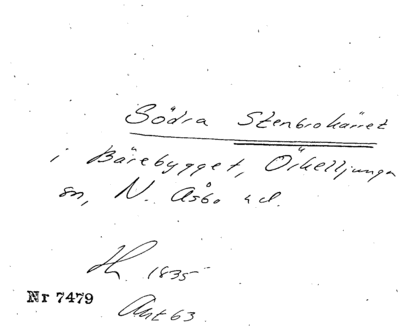 Södra Stenbrokärret
i Bärebygget, Örkelljunga
sn, N. Åsbo hd.
1835
Nr 7479
Akt 63